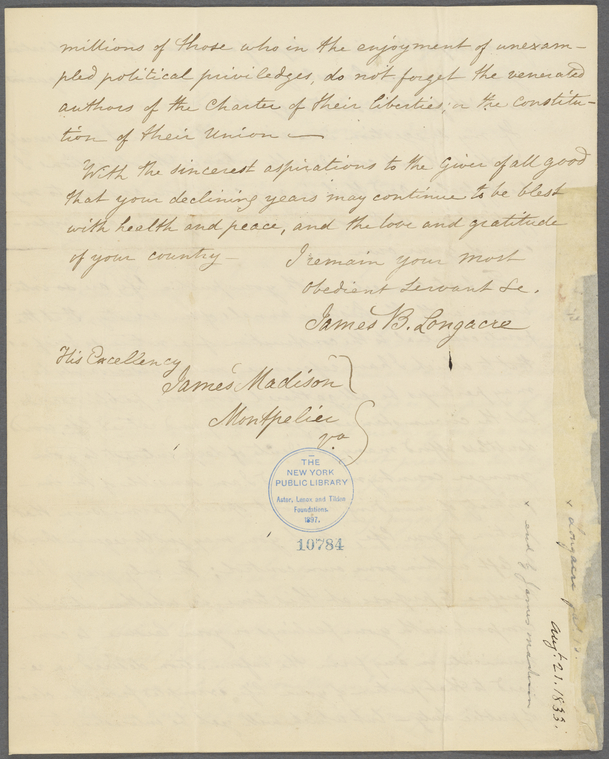 millions of those who in the enjoyment of unexam-
pled political priviledges, do not forget the venerated
authors of the Charter of their liberties, or the constitu-
tion of their Union —
With the sincerest aspirations to the Giver of all good
that your declining years may continue to be blest
with health and peace, and the love and gratitude
of your country —
I remain your most
obedient servant &c.
James B. Longacre
His Excellency
James Madison
Montpelier
Va
THE
NEW YORK
PUBLIC LIBRARY
Astor, Lenox and Tilden
Foundations.
1897.
10784
Longacre
James Madison
Augt. 21. 1833.